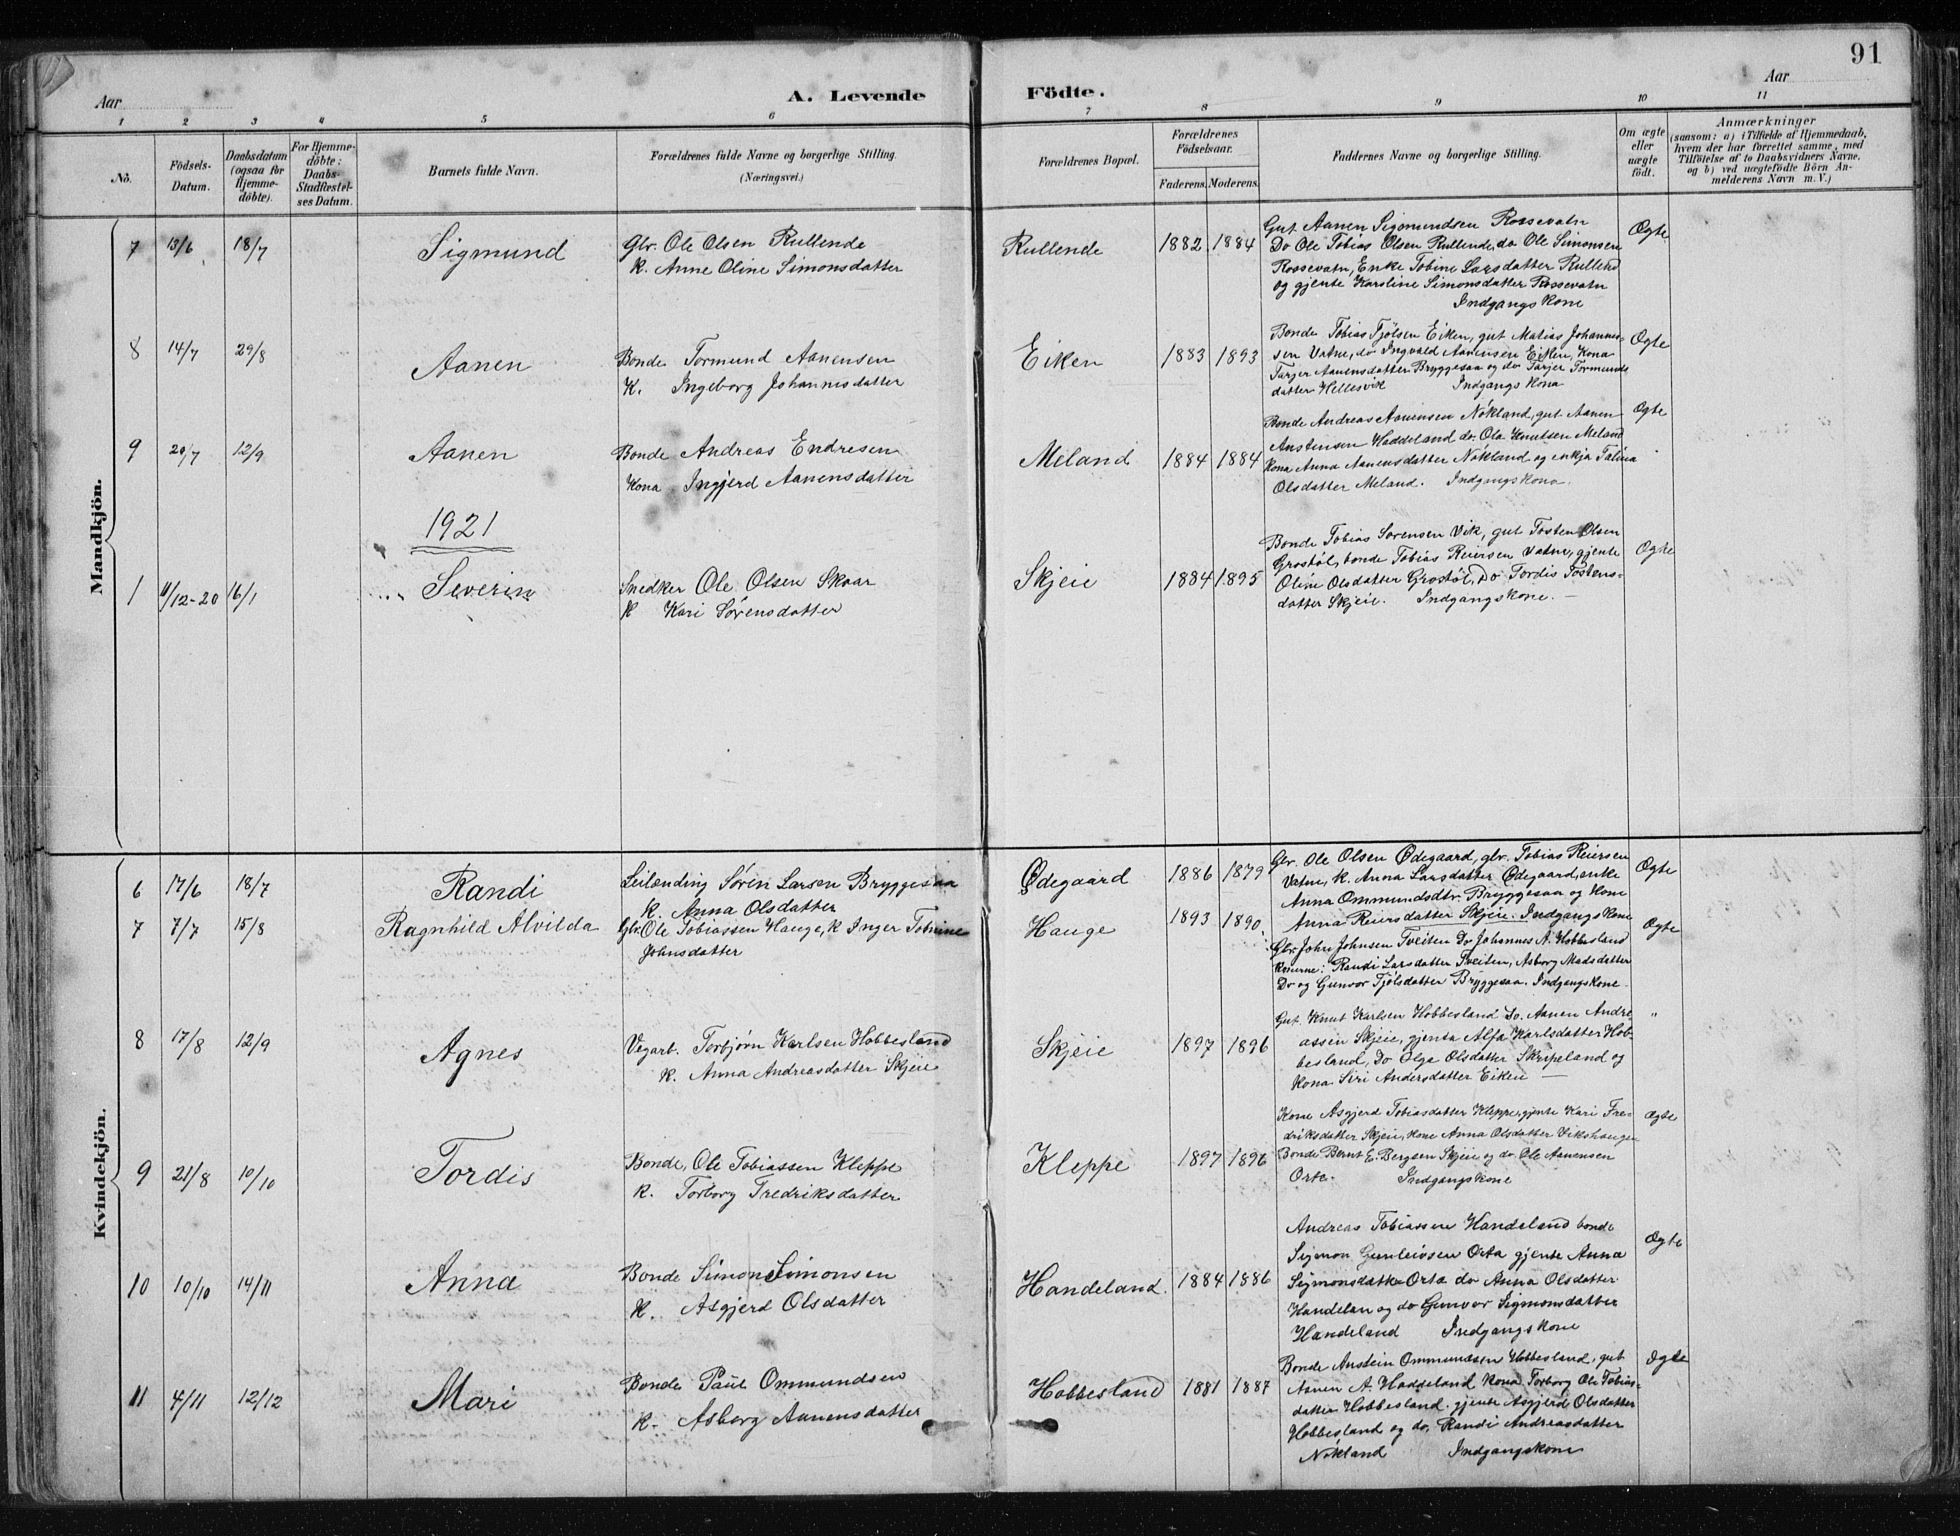 91
Aar
A. Levende Födte.
Aar
1 2 3 4 5 6 7 8 9 10 11
No.
Födsels-
Datum.
Daabsdatum
(ogsaa for
Hjemme-
döbte).
For Hjemme-
döbte:
Daabs-
Stadfæstel-
ses Datum.
Barnets fulde Navn.
Forældrenes fulde Navne og borgerlige Stilling.
(Næringsvei.)
Forældrenes Bopæl.
Forældrenes
Födselsaar.
Faderens. Moderens.
Faddernes Navne og borgerlige Stilling.
Om ægte
eller
uægte
født.
Anmærkninger
(saasom: a) i Tilfælde af Hjemmedaab,
hvem der har forrettet samme, med
Tilföielse af to Daabsvidners Navne,
og b) ved uægtefödte Börn An-
melderens Navn m. V.)
Mandkjön.
7 13/6 18/7 Sigmund
Gbr. Ole Olsen Rullende
K. Anne Oline Simonsdatter
Rullende 1882 1884
Gut Aanen Sigmundsen Rossevatn
Do Ole Tobias Olsen Rullende, do Ole Simonsen
Rossevatn, Enke Tobine Larsdatter Rullend
og gjente Karoline Simonsdatter Rossevatn
Indgangskone
Øgte
8 14/7 29/8 Aanen
Bonde Tormund Aanensen
K. Ingeborg Johannisdatter
Eiken 1883 1893
Bonde Tobias Tjølsen Eiken, gut Matias Johannes-
sen Vatne, do Ingvald Aanensen Eiken, Kona
Tarjer Aanensdatter Bryggesaa og do Tarjer Tormunds
datter Hellesvik Indgangskona
Øgte
9 20/7 12/9 Aanen
Bonde Andreas Endresen
Kona Ingjerd Aanensdatter
Meland 1884 1884
Bonde Andreas Aanensen Nökland, gut Aanen
Anstensen Haddeland do. Ola Knutsen Meland
Kona Anna Aanensdatter Nökland og enkja Talina
Olsdatter Meland. Indgangskona.
Øgte
1921
1 11/12-20 16/1 Severin
Snedker Ole Olsen Skaar
K Kari Sørensdatter
Skjeie 1884 1895
Bonde Tobias Sørensen Vik, gut Tosten Olsen
Grostøl, bonde Tobias Reiersen Vatne, gjente
Oline Olsdatter Grostøl, Do Tordis Tostens-
datter Skjeie. Indgangskone.
Øgte
Kvindekjön.
6 17/6 18/7 Randi
Leilænding Søren Larsen Bryggesaa
K. Anna Olsdatter
Ødegaard 1886 1879
Gbr. Ole Olsen Ødegaard, gbr. Tobias Reiersen
Vatne, K. Anna Larsdatter Ødegaard, enke
Anna Ommundsdtr. Bryggesaa og Kone
Anna Reiersdatter Skjeie. Indgangskone
Øgte
7 7/7 15/8 Ragnhild Alvilda
Gbr. Ole Tobiassen Hauge, K Inger Tobine
Johnsdatter
Hauge 1893 1890
Gbr. John Johnsen Tveiten Do Johannes A. Hobbesland
Konerne: Randi Larsdatter Tveiten, Asborg Madsdatter
Do og Gunvor Tjølsdatter Bryggesaa. Indgangskone.
Øgte
8 17/8 12/9 Agnes
Vegarb. Torbjørn Karlsen Hobbesland
K. Anna Andreasdatter Skjeie
Skjeie 1897 1896
Gut Knut Karlsen Hobbesland Do. Aanen Andre
assen Skjeie, gjenta Alfa Karlsdatter Hob-
besland, Do Olga Olsdatter Skripeland og
Kona Siri Andersdatter Eiken
"
9 21/8 10/10 Tordis
Bonde, Ole Tobiassen Kleppe
K. Torborg Fredriksdatter
Kleppe 1897 1896
Kone Asgjerd Tobiasdatter Kleppe, gjente Kari Fre-
driksdatter Skjeie, Kone Anna Olsdatter Vikshaugen
Bonde Bernt E. Bergsen Skjeie og do. Ole Aanensen
Orte. Indgangskone
Ægte
10 10/10 14/11 Anna
Bonde Simon Simonsen
K. Asgjerd Olsdatter
Handeland. 1884 1886
Andreas Tobiassen Handeland bonde
Sigmon Gunleivsen Orta gjente Anna
Sigmonsdatter Orta do Anna Olsdatter
Handelan og do Gunvor Sigmonsdatter
Handeland Indgangskone
Ægte
11 4/11 12/12 Mari
Bonde Paul Ommundsen
K. Asborg Aanensdatter
Hobbesland 1881 1887
Bonde Anstein Ommundsen Hobbesland, gut
Aanen A. Haddeland Kona Torborg Ole Tobias-
datter Hobbesland. gjente Asgjerd Olsdatter
Hobbesland og do. Randi Andreasdatter
Nökland Indgangskone
Øgte